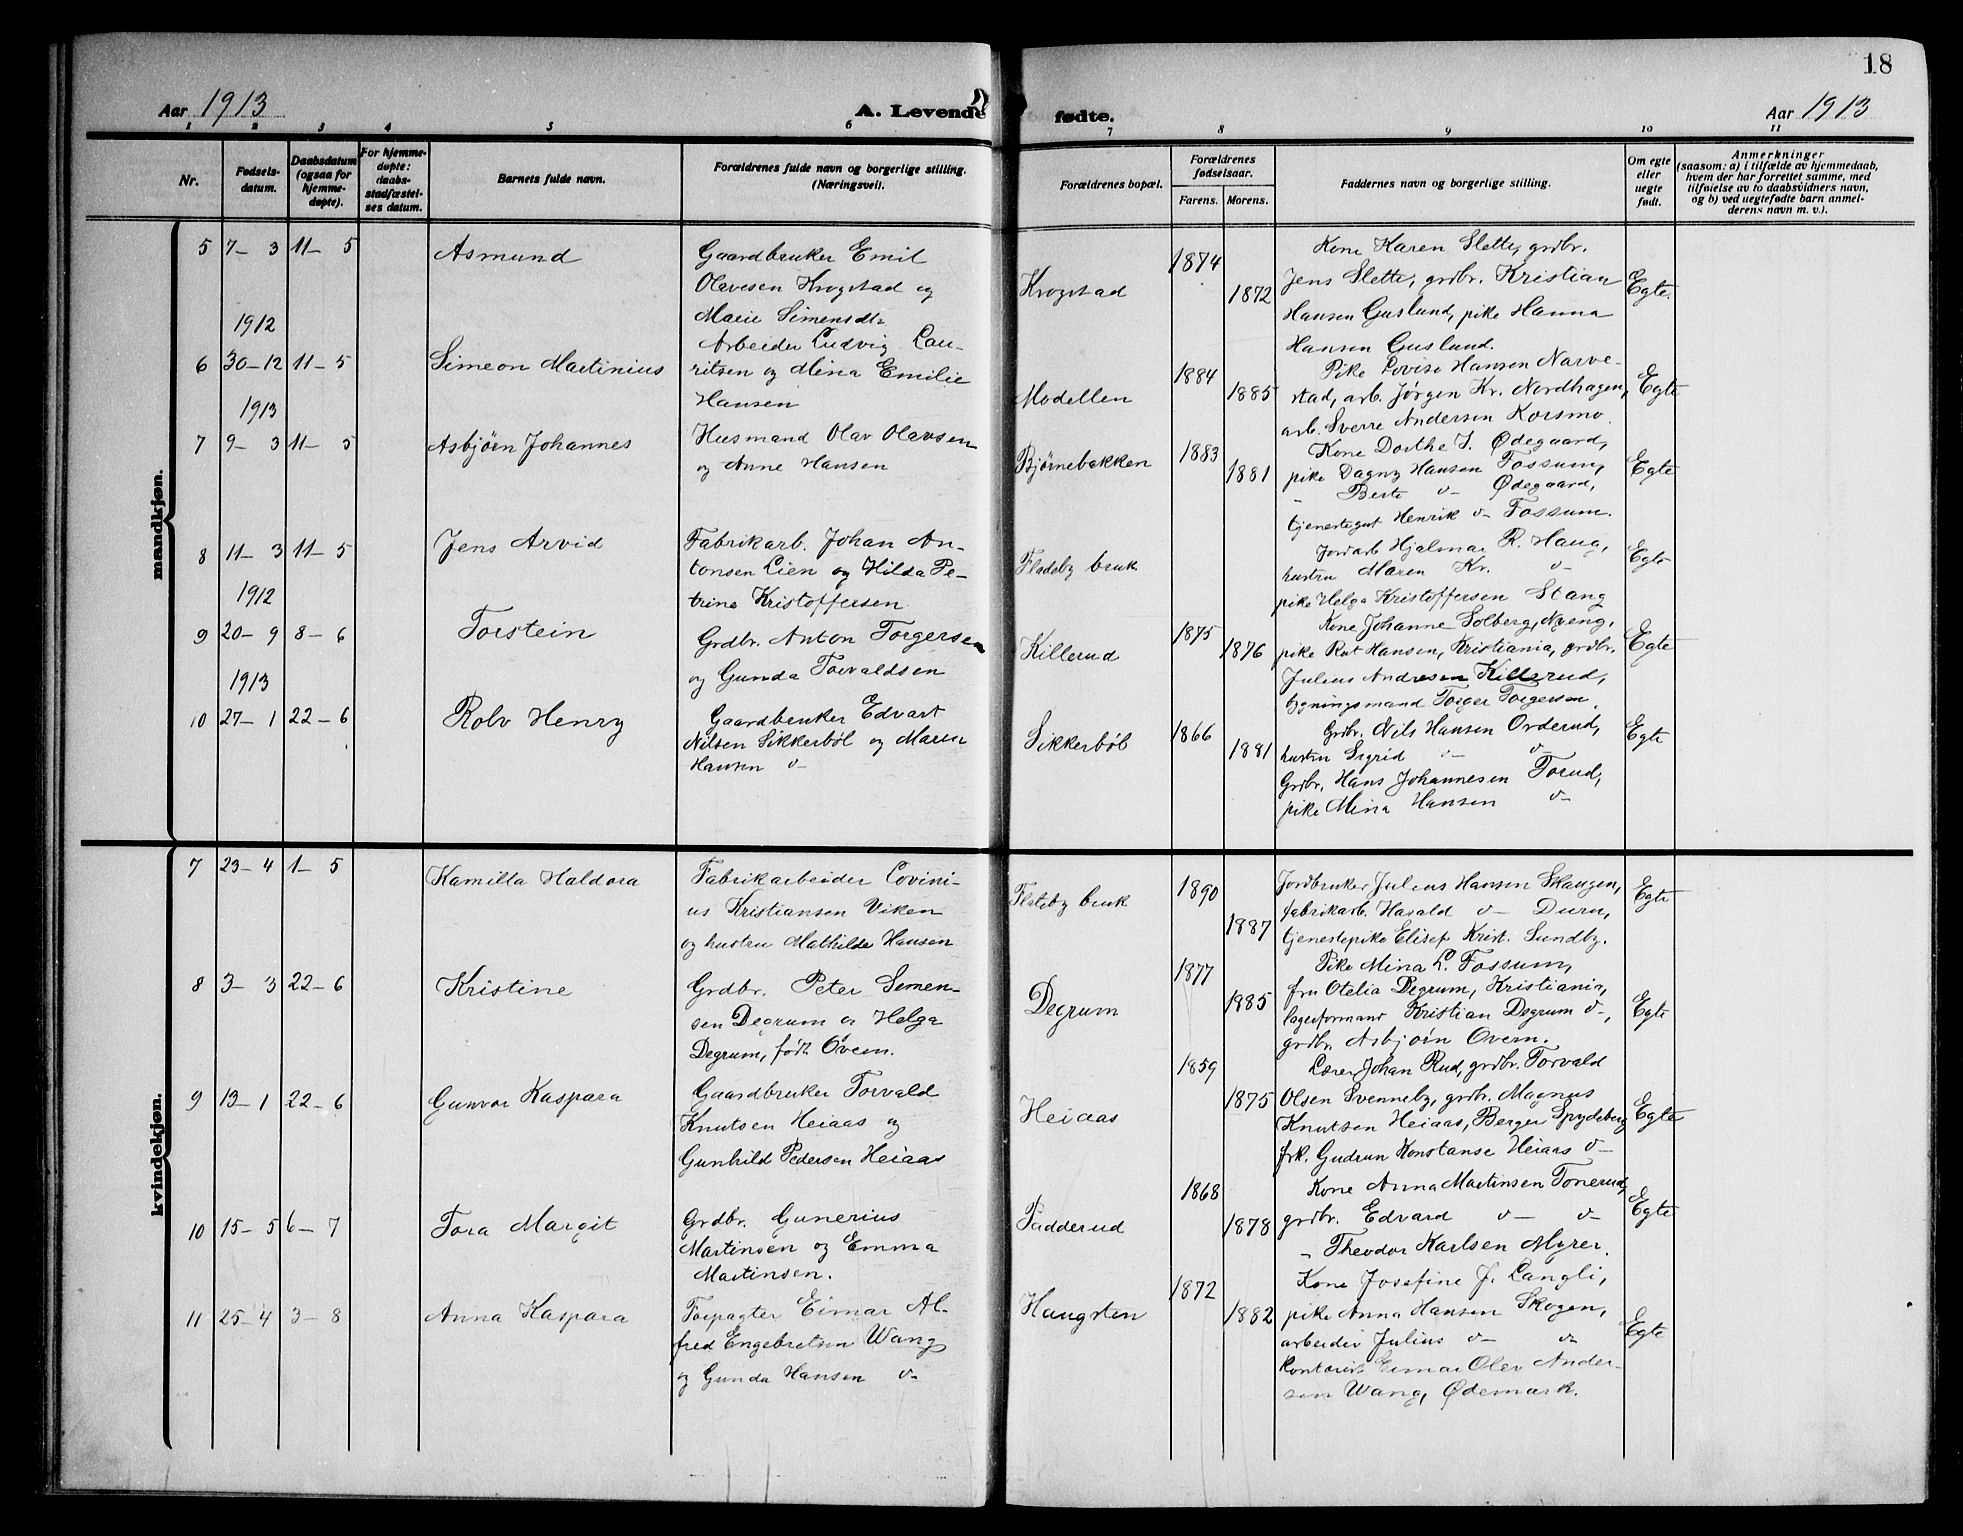 18
Aar 1913
A. Levende fødte.
Aar 1913
1 2 3 4 5 6 7 8 9 10 11
Nr.
Fødsels-
datum.
Daabsdatum
(ogsaa for
hjemme-
døpte).
For hjemme-
døpte:
daabs-
stadfæstel-
ses datum.
Barnets fulde navn.
Forældrenes fulde navn og borgerlige stilling.
(Næringsvei).
Forældrenes bopæl.
Forældrenes
fødselsaar.
Farens. Morens.
Faddernes navn og borgerlige stilling.
Om egte
eller
uegte
født.
Anmerkninger
(saasom: a) i tilfælde av hjemmedaab,
hvem der har forrettet samme, med
tilføielse av to daabsvidners navn,
og b) ved uegtefødte barn anmel-
derens navn m. v.).
mandkjøn.
5 7–3 11–5
Asmund
Gaardbruker Emil
Olavesen Krogstad og
Marie Simensdtr
Krogstad
1874 1872
Kone Karen Slette, grdbr.
Jens Slette, grdbr. Kristian
Hansen Guslund, pike Hanna
Hansen Guslund.
Egte.
1912
6 30–12 11–5
Simeon Martinius
Arbeider Ludvig Lau-
ritsen og Mina Emilie
Hansen
Modellen
1884 1885
Pike Lovise Hansen Narve-
stad, arb. Jørgen Kr. Nordhagen,
arb. Sverre Andersen Korsmo.
Egte
1913
7 9–3 11–5
Asbjørn Johannes
Husmand Olav Olavsen
og Anne Hansen
Bjørnebakken
1883 1881
Kone Dorthe J. Ødegaard,
pike Dagny Hansen Fossum,
" Berte v– Ødegaard,
tjenestegut Henrik v– Fossum.
Egte
8 11–3 11–5
Jens Arvid
Fabrikarb. Johan An-
tonsen Lien og Hilda Pe-
trine Kristoffersen
Flateby bruk
Jordarb Hjalmar R. Haug,
hustru Maren Kr. v–
pike Helga Kristoffersen Stang
Egte
1912
9 20–9 8–6
Torstein
Grdbr. Anton Torgersen
og Gunda Torvaldsen
Killerud
1875 1876
Kone Johanne Solberg,
pike Rut Hansen, Kristiania, grdbr.
Julius Andresen Killerud,
bygningsmand Torger Torgersen.
Egte
1913
10 27–1 22–6
Rolv Henry
Gaardbruker Edvart
Nilsen Sikkerbøl og Maren
Hansen v–
Sikkerbøl
1866 1881
Grdbr. Nils Hansen Orderud,
hustru Sigrid " v–
Grdbr. Hans Johannesen Torud,
pike Mina Hansen v–
Egte
kvindekjøn.
7 23–4 1–5
Kamilla Haldora
Fabrikarbeider Lovini-
us Kristiansen Viken
og hustru Mathilde Hansen
Flateby bruk
1890 1887
Jordbruker Julius Hansen Skaugen,
fabrikarb. Harald v– Durn,
tjenestepike Elisef Krist. Sundby.
Egte
8 3–3 22–6
Kristine
Grdbr. Peter Semen-
sen Degrum og Helga
Degrum, født Overn.
Degrum
1877 1885
Pike Mina L. Fossum,
fru Otelia Degrum, Kristiania,
lagerformand Kristian Degrum v–,
grdbr. Asbjørn Overn.
Egte
9 13–1 22–6
Gunvor Kaspara
Gaardbruker Torvald
Knutsen Heiaas og
Gunhild Pedersen Heiaas
Heiaas
1859 1875
Lærer Johan Rud, grdbr. Torvald
Olsen Svenneby, grdbr. Magnus
Knutsen Heiaas, Berger Spydeberg
frk. Gudrun Konstanse Heiaas v–
Egte
10 15–5 6–7
Tora Margit
Grdbr. Gunerius
Martinsen og Emma
Martinsen.
Fadderud
1868 1878
Kone Anna Martinsen Tonerud,
grdbr. Edvard v– v–
" Theodor Karlsen Myrer.
Egte
11 25–4 3–8
Anna Kaspara
Forpagter Eimar Al-
fred Engebretsen Wang
og Gunda Hansen v–
Haugsten
1872 1882
Kone Josefine J. Langli,
pike Anna Hansen Skogen,
arbeider Julius v– v–
kontorist Eimar Olav Ander-
sen Wang, Ødemark.
Egte